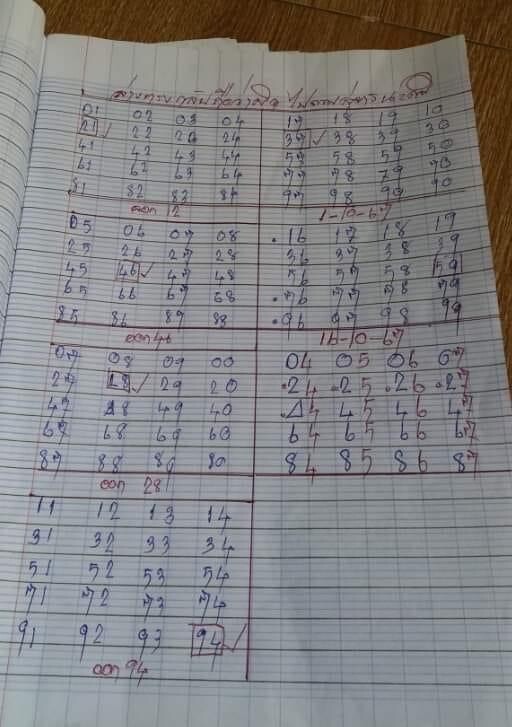 01 02 03 04 17 18 19 10
21 22 23 24 37 38 39 30
41 42 43 44 57 58 59 50
61 62 63 64 77 78 79 70
81 82 83 84 97 98 99 90
ออก 12 1-10-67
05 06 07 08 .16 17 18 19
25 26 27 28 36 37 38 39
45 46 47 48 56 57 58 59
65 66 67 68 .76 77 78 79
85 86 87 88 .96 97 98 99
ออก 46 16-10-67
07 08 09 00 04 05 06 07
27 28 29 20 .24 .25 .26 .27
47 48 49 40 .44 45 46 47
67 68 69 60 64 65 66 67
87 88 89 80 84 85 86 87
ออก 28
11 12 13 14
31 32 33 34
51 52 53 54
71 72 73 74
91 92 93 94
ออก 94